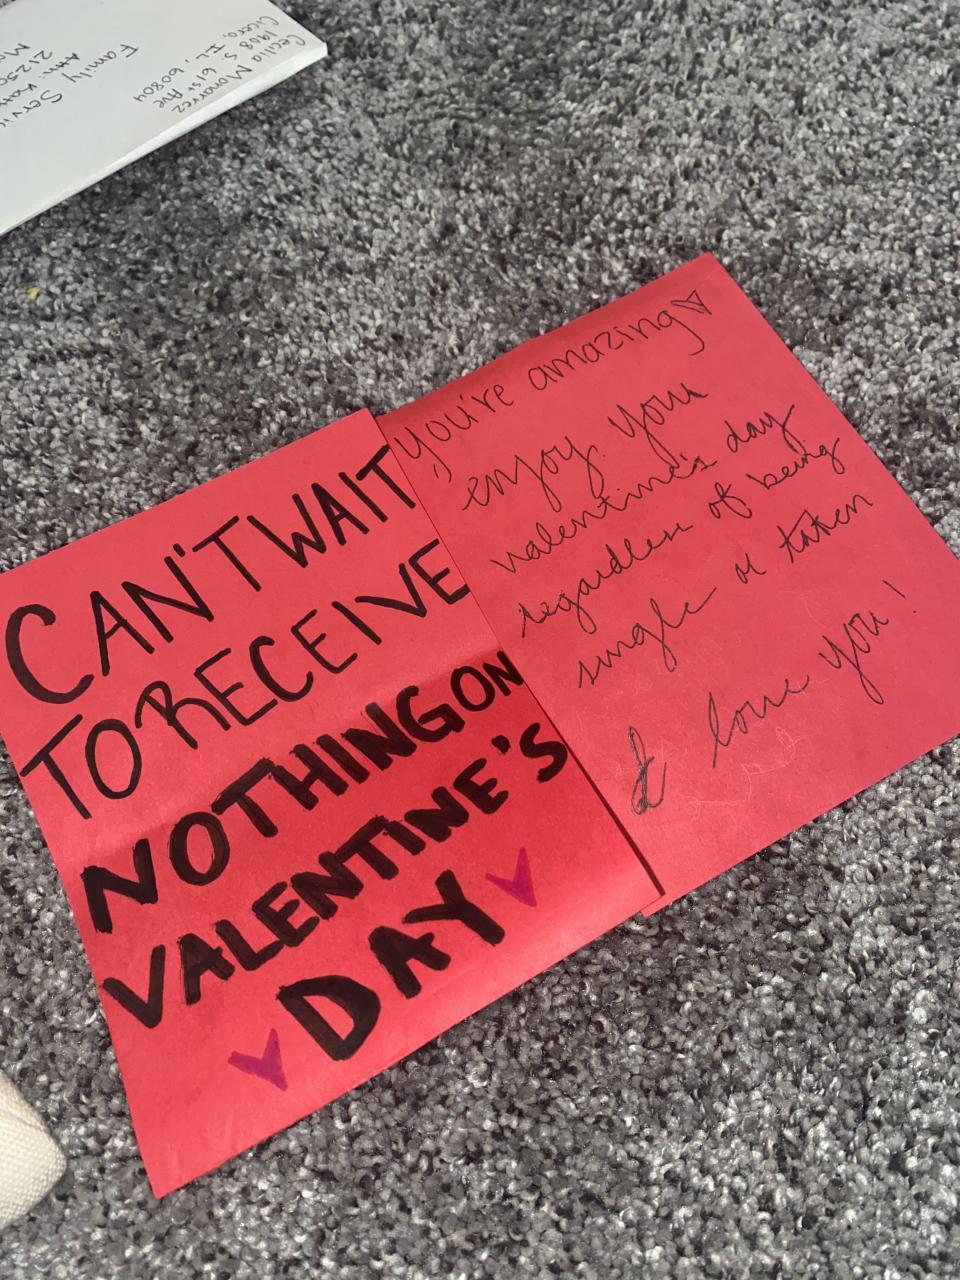 Cecilia Monarrez
1908 S. 61st Ave
Cicero, IL, 60804
Family Servi
Attn:
2125
CAN'T WAIT
TO RECEIVE
NOTHING ON
VALENTINE'S
DAY
You're amazing
enjoy your
valentine's day
regardless of being
single or taken
I love you!